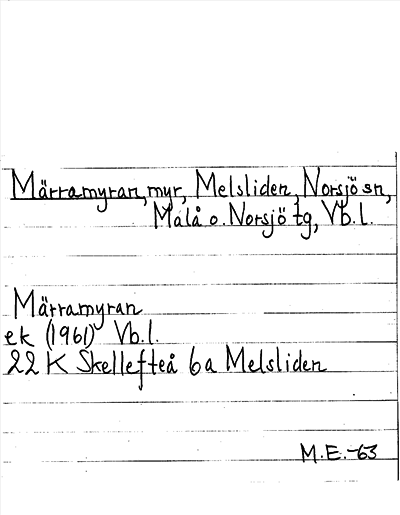 Märramyran, myr, Melsliden, Norsjö sn,
Malå o. Norsjö tg, Vb.l.
Märramyran
ek (1961) Vb.l.
22 K Skellefteå 6a Melsliden
M.E.-63